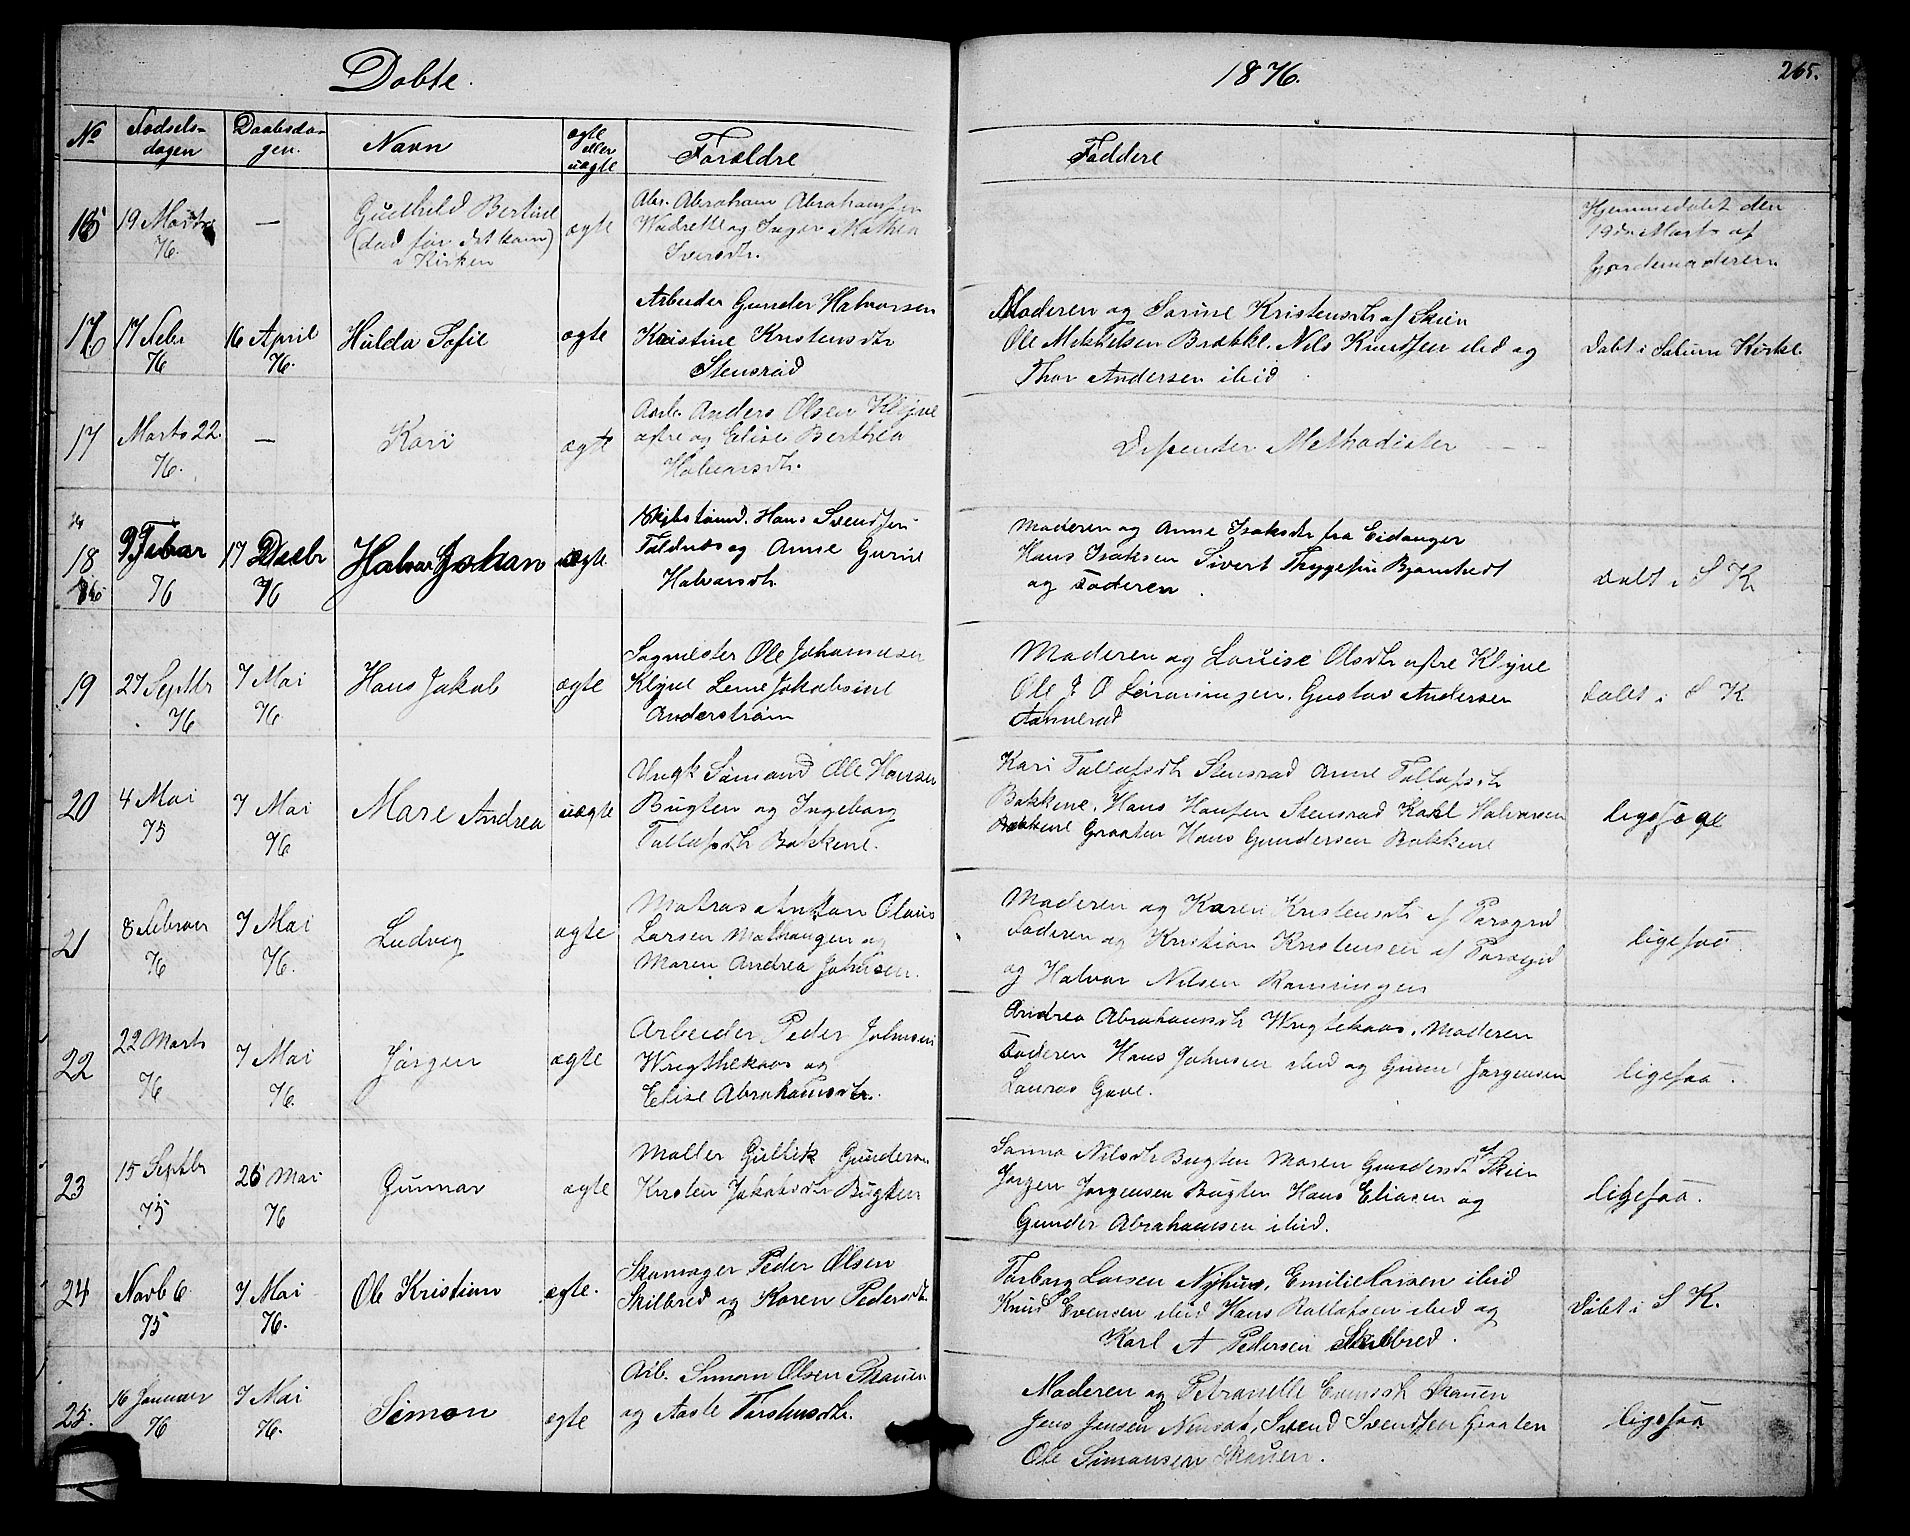 Døbte.
1876.
265.
No
Fødsels-
dagen
Daabsda-
gen.
Navn
ægte
eller
uægte
Forældre
Faddere
15
19 Marts
76.
—
Gunhild Bertine
(død før det kom)
i Kirken
ægte
Abr. Abraham Abrahamsen
og Inger Mathea
Iversdtr.
Hjemmedøbt den
19de Marts af
Gjordemoderen
16
17 Febr
76
16 April
76.
Hulda Sofie
ægte
Arbeider Gunder Halvorsen
Kristine Kristensdtr
Stensrød
Moderen og Sørine Kristensdtr af Skien
Ole Mikkelsen Brække. Nils Knudsen ibid og
Thor Andersen ibid
Døbt i Solum Kirke.
17
Marts 22.
76.
—
Kari
ægte
Arb. Anders Olsen Klyve
østre og Elise Berthea
Halvorsdtr.
Dissenter Methodister
18
9 Febuar
76
17 Decbr
76
Halvor Johan
uægte
Skibstømd. Hans Svendsen
og Anne Gurine
Halvorsdtr
Moderen og Anne Isaksdtr fra Eidanger
Hans Isaksen Sivert Thygesen Bjørnstedt
og Faderen.
Døbt i S K
19
27 Septbr
76
7 Mai
76
Hans Jakob
ægte
Sagmester Ole Johannesen
Klyve Lene Jakobine
Anderstrøm
Moderen og Louise Olsdtr østre Klyve
Ole J O Leraningen. Gustav Andersen
døbt i S K
20
4 Mai
75
7 Mai
76
Mare Andrea
uægte
Ungk Sømand Ole Hansen
Bugten og Ingeborg
Tollofsdtr Bakkene.
Kari Tollofsdtr Stensrød Anne Tollofsdtr
Bakkene. Hans Hansen Stensrød Karl Halvorsen
Bakkene Graaten Hans Gundersen Bakkene
21
8 Februar
76
7 Mai
76.
Ludvig
ægte
Matros Anton Olaus
Larsen Molhaugen og
Maren Andrea Johnsen.
Moderen og Karen Kristensdtr af Porsgrnd
Faderen og Kristian Kristensen af Porsgrnd
og Halvor Nilsen Ramningen
ligesaa.
22
22 Marts
76
7 Mai
76.
Jørgen
ægte
Arbeider Peder Johnsen
og
Elise Abrahamsdtr.
Andrea Abrahamsdtr Moderen
Faderen Hans Johnsen ibid og Jørgensen
ligesaa.
23
15 Septbr
75
26 Mai
76
Gunnar
ægte
Møller Gullik Gundersen
Kirsten Jakobsdtr Bugten
Sanna Nilsdtr Bugten Maren Gundersdtr af Skien
Jørgen Jørgensen Bugten Hans Eliasen og
Gunder Abrahamsen ibid.
ligesaa.
24
Novb 6
75
7 Mai
76.
Ole Kristian
ægte.
Skomager Peder Olsen
Skilbred og Karen Pedersdtr.
Torborg Larsen Nyhus, Emilie Larsen ibid
Knud Evensen ibid Hans Rollofsen ibid og
Karl A Pedersen Skilbred.
Døbt i S K.
25.
16 Januar
76
7 Mai
76.
Simon
ægte
Arb. Simon Olsen Skauen
og Aaste Torstensdtr.
Moderen og Petronelle Evensdtr Skauen
Jens Jensen Svend Svendsen Graaten
Ole Simonsen Skauen.
ligesaa